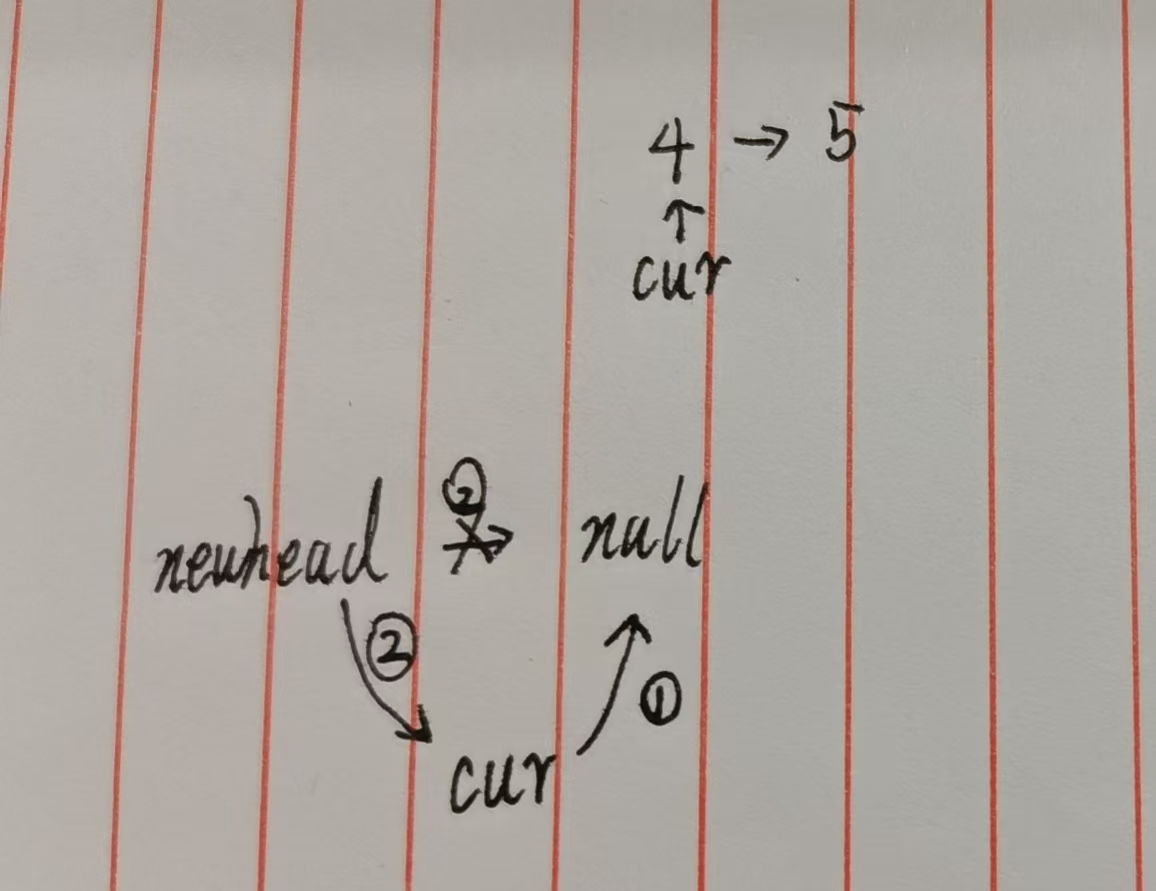 4 → 5
↑
cur
②
newhead → null
②
①
cur